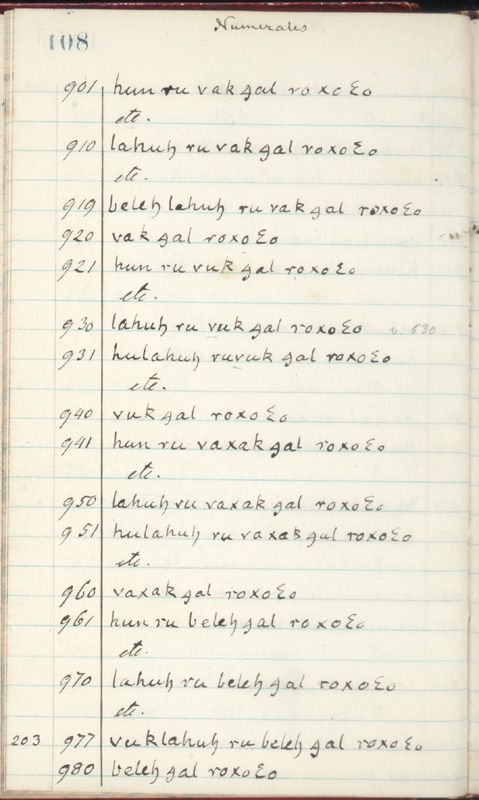 Numerales
108
901 hun ru vak gal roxo Ɛo
etc.
910 lahuh ru vak gal roxo Ɛo
etc.
919 beleh lahuh ru vak gal roxo Ɛo
920 vak gal roxo Ɛo
921 hun ru vuk gal roxo Ɛo
etc.
930 lahuh ru vuk gal roxo Ɛo v. 630
931 hulahuh ru vuk gal roxo Ɛo
etc.
940 vuk gal roxo Ɛo
941 hun ru vaxak gal roxo Ɛo
etc.
950 lahuh ru vaxak gal roxo Ɛo
951 hulahuh ru vaxak gal roxo Ɛo
etc.
960 vaxak gal roxo Ɛo
961 hun ru beleh gal roxo Ɛo
etc.
970 lahuh ru beleh gal roxo Ɛo
etc.
203 977 vuklahuh ru beleh gal roxo Ɛo
980 beleh gal roxo Ɛo